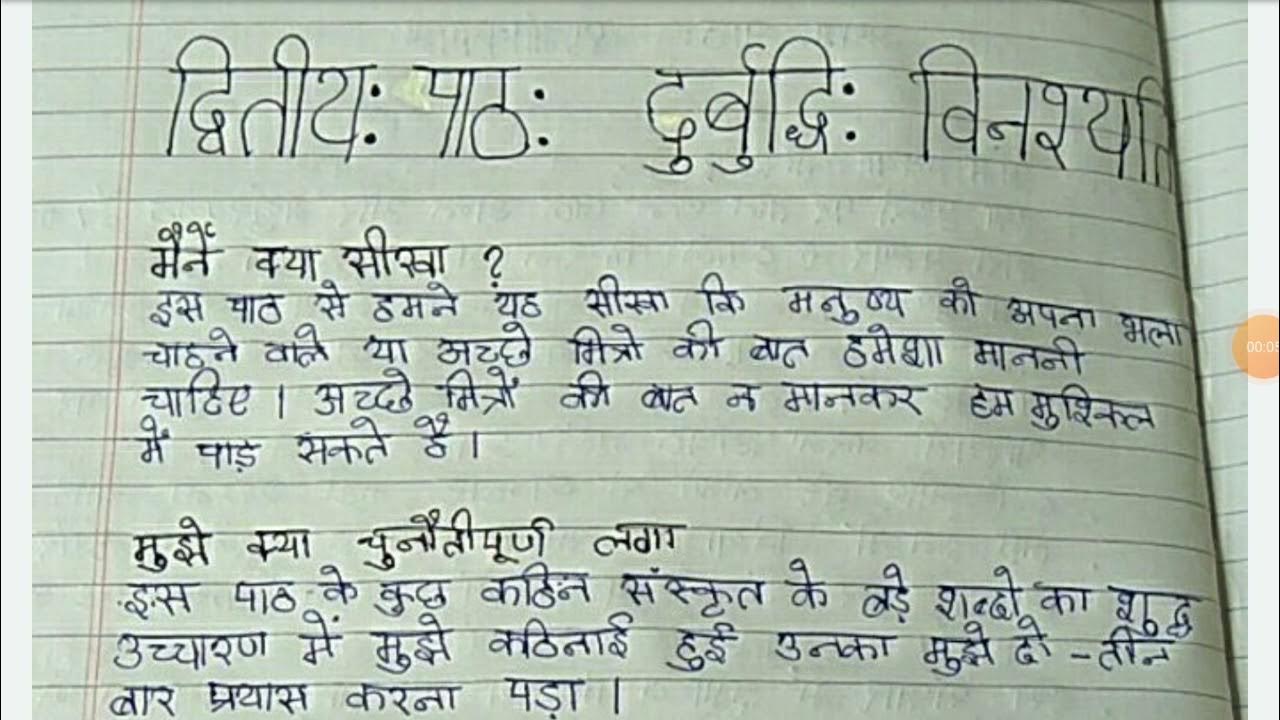 द्वितीयः पाठः दुर्बुद्धिः विनश्यति
मैनें क्या सीखा ?
इस पाठ से हमने यह सीखा कि मनुष्य को अपना भला
चाहने वाले या अच्छे मित्रो की बात हमेशा माननी
चाहिए । अच्छे मित्रों की बात न मानकर हम मुश्किल
में पाड़ सकते है ।
मुझे क्या चुनौतीपूर्ण लगा
इस पाठ के कुछ कठिन संस्कृत के बड़े शब्दो का शुद्ध
उच्चारण में मुझे कठिनाई हुई उनका मुझे दो -तीन
बार प्रयास करना पड़ा ।